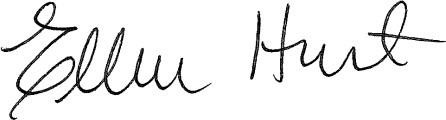 Ellen Hurt